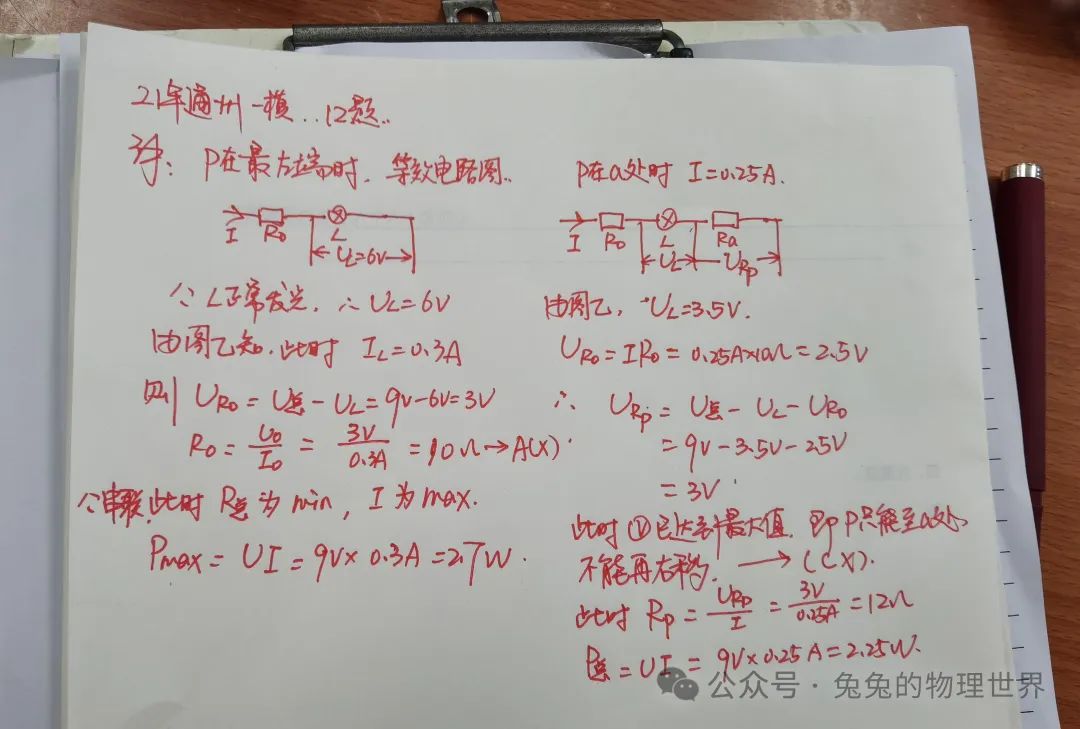 21年通州一模..12题..
译: P在最左端时. 等效电路图..
I R₀ L
U_L=6V
∵ L正常发光, ∴ U_L=6V
由图乙知, 此时 I_L=0.3A
则 U_R₀=U总-U_L=9V-6V=3V
R₀=U₀/I₀=3V/0.3A=10Ω→A(X)
∵串联,此时 R总为min, I为max.
Pmax=UI=9V×0.3A=2.7W.
P在a处时 I=0.25A.
I R₀ L Ra
U_L U_Rp
由图乙, U_L=3.5V.
U_R₀=IR₀=0.25A×10Ω=2.5V
∴ U_Rp=U总-U_L-U_R₀
=9V-3.5V-2.5V
=3V
此时Ⓥ已达到最大值, 即P只能至a处,
不能再右移, →(CX).
此时 Rp=U_Rp/I=3V/0.25A=12Ω
P总=UI=9V×0.25A=2.25W.
公众号·兔兔的物理世界